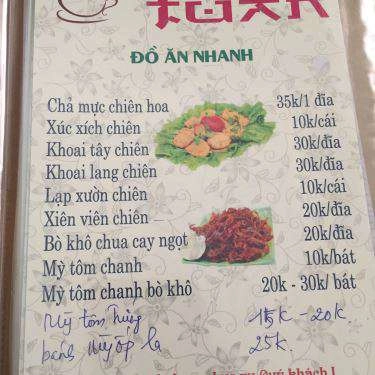 TUẤN
ĐỒ ĂN NHANH
Chả mực chiên hoa 35k/1 đĩa
Xúc xích chiên 10k/cái
Khoai tây chiên 30k/đĩa
Khoai lang chiên 30k/đĩa
Lạp xườn chiên 10k/cái
Xiên viên chiên 20k/đĩa
Bò khô chua cay ngọt 20k/đĩa
Mỳ tôm chanh 10k/bát
Mỳ tôm chanh bò khô 20k - 30k/ bát
Mỳ tôm trứng 15k - 20k
bánh mỳ ốp la 25k.
quý khách !